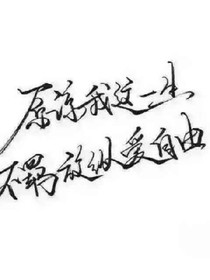 原谅我这一生
不羁放纵爱自由